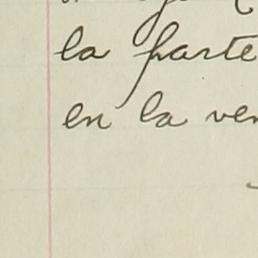 la parte
en la ven